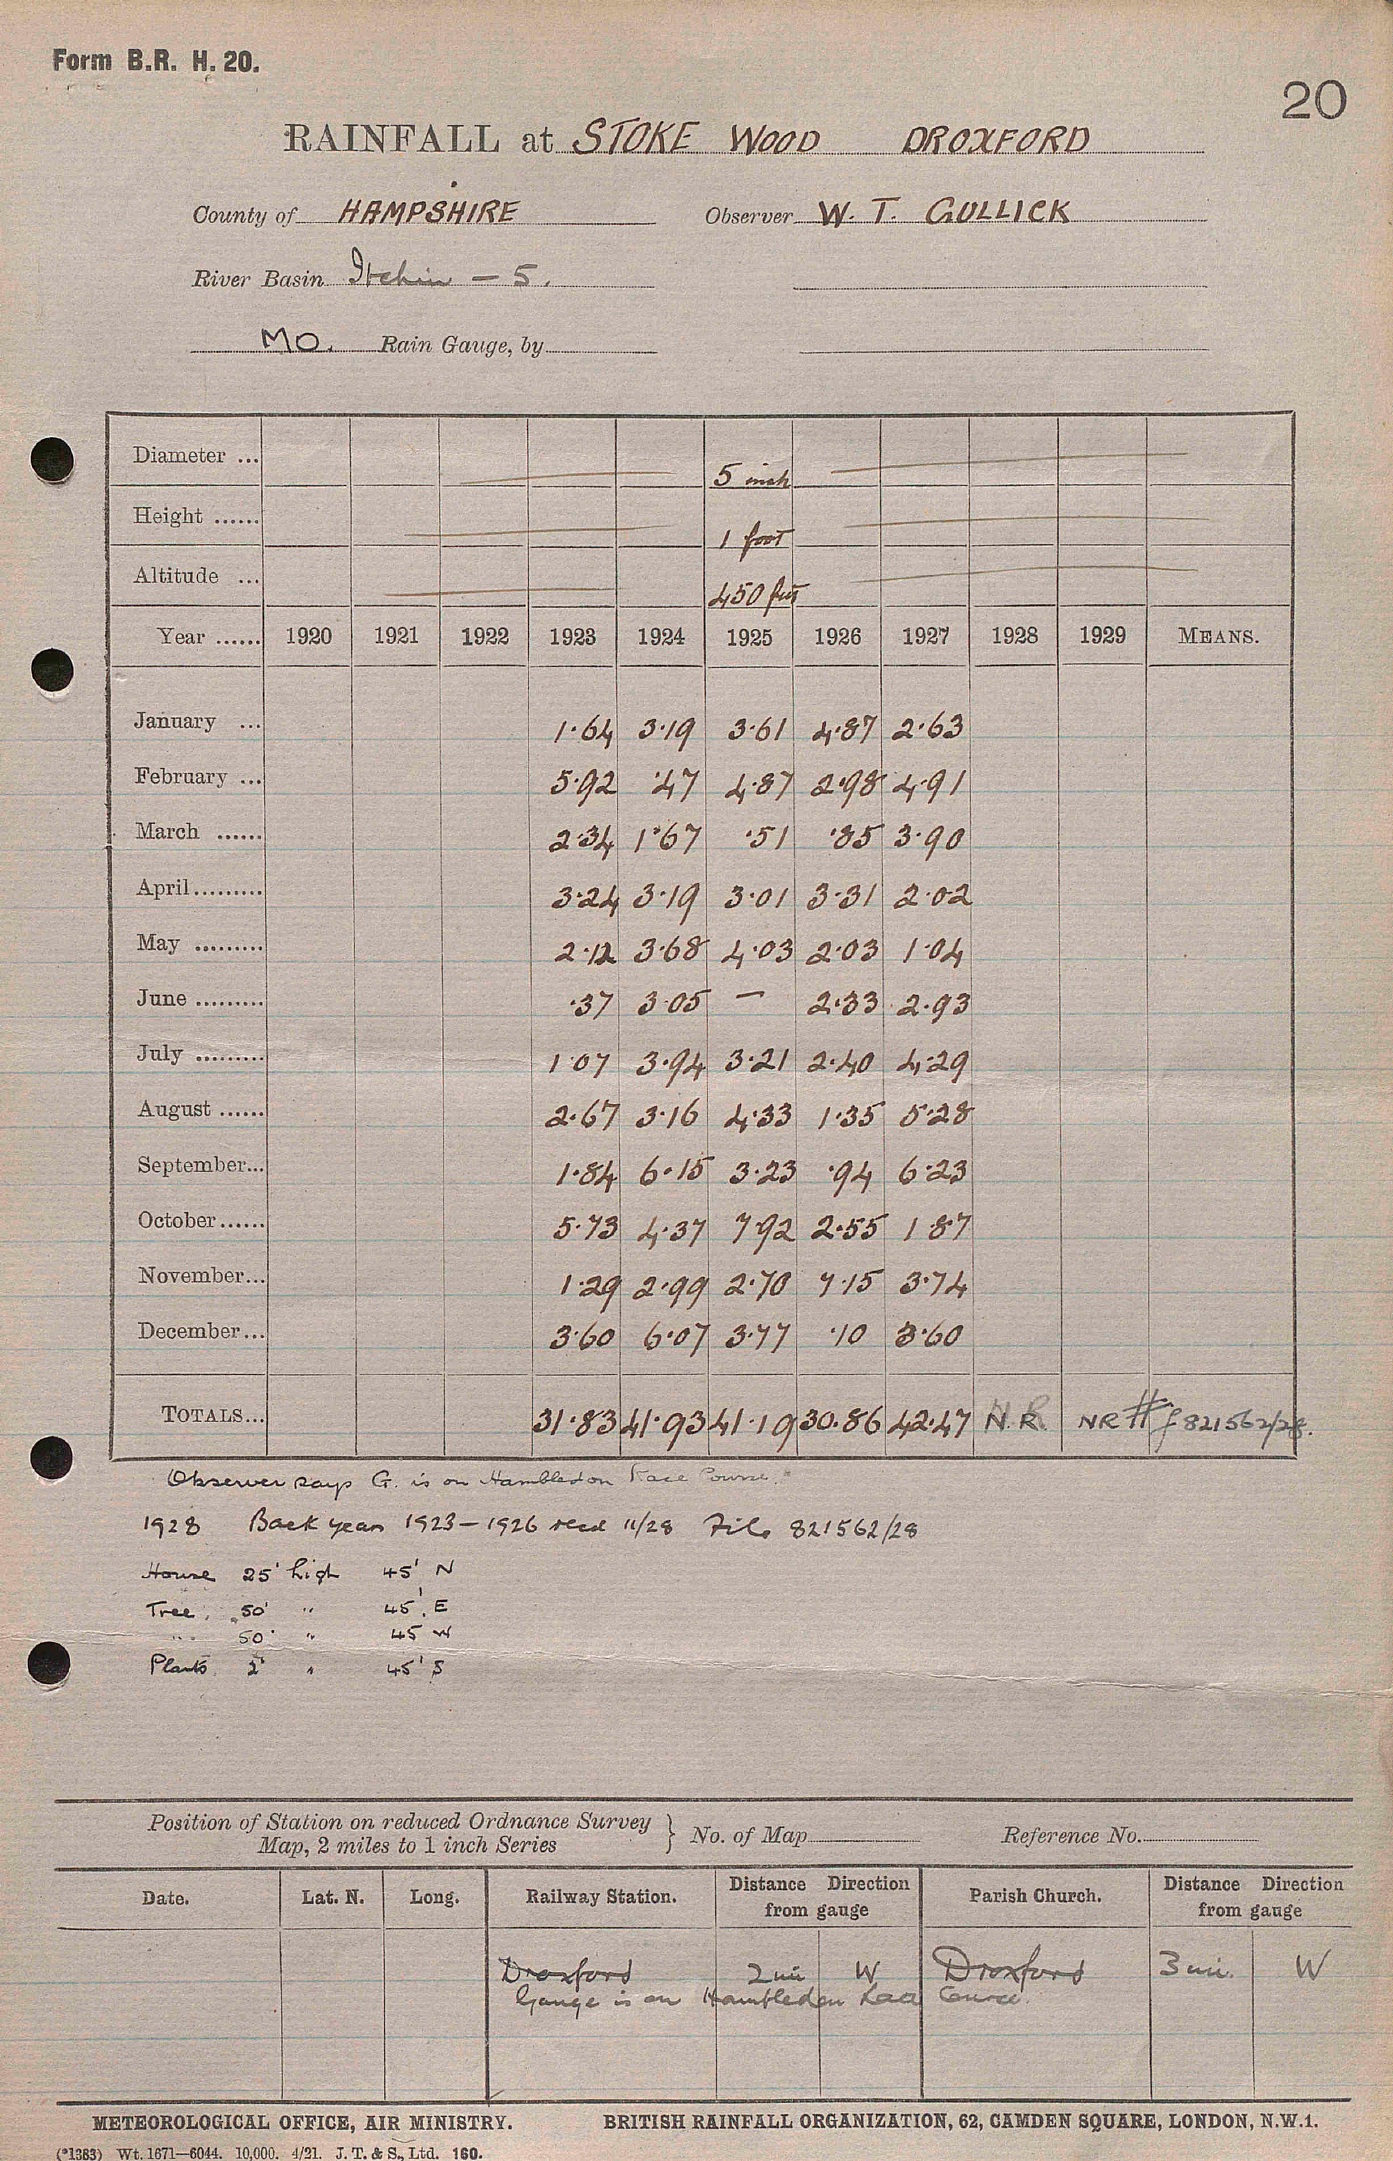 Form B.R. H. 20.
20
RAINFALL at STOKE WOOD DROXFORD
County of HAMPSHIRE Observer W. T. GULLICK
River Basin Itchin — 5.
MO. Rain Gauge, by
Diameter ... 5 inch
Height ...... 1 foot
Altitude ... 450 feet
Year ...... 1920 1921 1922 1923 1924 1925 1926 1927 1928 1929 MEANS.
January ... 1·64 3·19 3·61 4·87 2·63
February ... 5·92 ·47 4·87 2·98 4·91
March ...... 2·34 1·67 ·51 ·85 3·90
April......... 3·24 3·19 3·01 3·31 2·02
May ......... 2·12 3·68 4·03 2·03 1·04
June ......... ·37 3·05 — 2·33 2·93
July ......... 1·07 3·94 3·21 2·40 4·29
August ...... 2·67 3·16 4·33 1·35 5·28
September... 1·84 6·15 3·23 ·94 6·23
October...... 5·73 4·37 7·92 2·55 1·87
November... 1·29 2·99 2·70 7·15 3·74
December... 3·60 6·07 3·77 ·10 3·60
TOTALS... 31·83 41·93 41·19 30·86 42·47 N.R. NR # f 821562/28.
Observer says G. is on Hambledon Race Course.
1928 Back years 1923—1926 recd 11/28 File 821562/28
House 25' high 45' N
Tree 50' " 45' E
" 50' " 45 W
Plants 2' " 45' S
Position of Station on reduced Ordnance Survey
Map, 2 miles to 1 inch Series } No. of Map Reference No.
Date. Lat. N. Long. Railway Station. Distance Direction from gauge Parish Church. Distance Direction from gauge
Droxford 2 mi W Droxford 3 mi. W
Gauge is on Hambledon Race Course.
METEOROLOGICAL OFFICE, AIR MINISTRY. BRITISH RAINFALL ORGANIZATION, 62, CAMDEN SQUARE, LONDON, N.W.1.
(*1383) Wt. 1671—6044. 10,000. 4/21. J. T. & S., Ltd. 160.